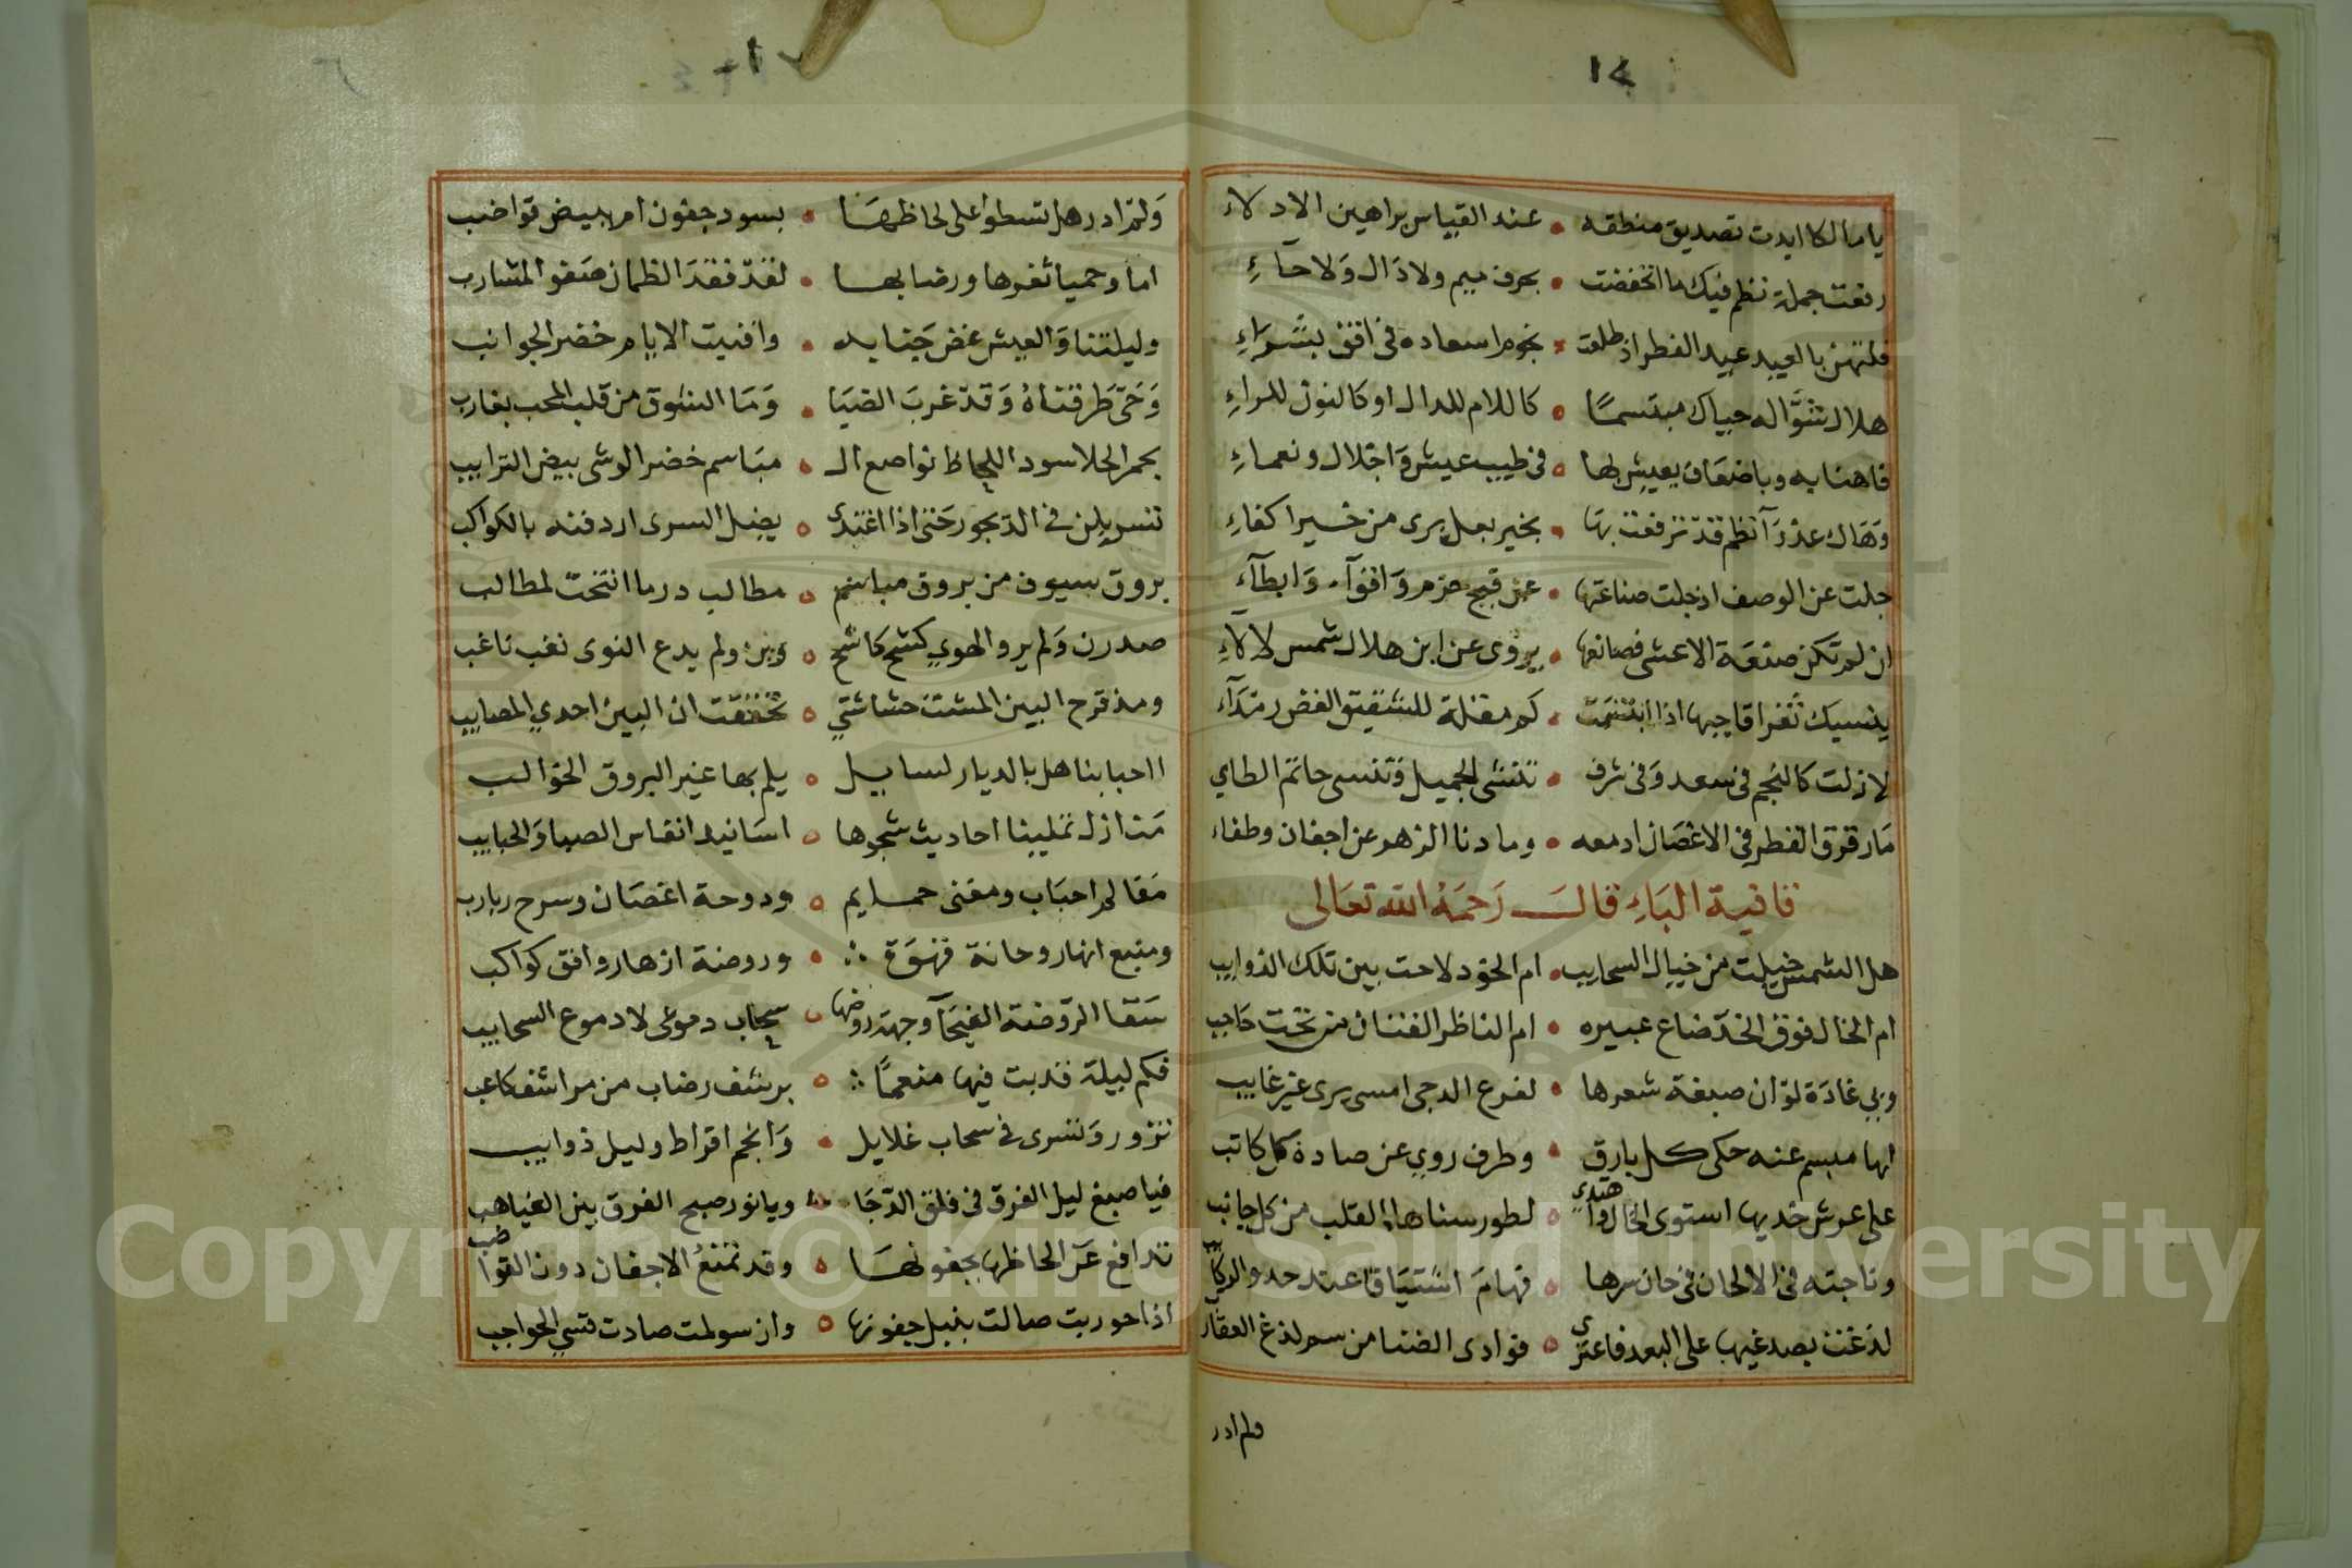 ١٤
يا مالكا ايدت تصديق منطقه • عند القياس براهين الادلاء
رفعت جملة نظم فيك ما انخفضت • بحرف ميم ولا دَال وَلا حآءِ
فلتهن بالعيد عيد الفطر اذ طلعت • نجوم اسعاده في افق بشراءِ
هلال شوّاله حياك مبتسمًا • كاللام للدال او كالنون للراءِ
فاهنا به وباضعاف بعيش بها • في طيب عيش وَاجلال ونعماءِ
وَهَاك عذرَآ نظم قد ترفعت بها • بخير بعل يرى من خير اكفاءِ
جلت عن الوصف اذ جلت صناعتها • عن قبح خرم وَاقوآء وَابطآء
ان لم تكن صنعة الاعشى فصانعها • يروى عن ابن هلال شمس لالآءِ
ينسيك ثغر اقاحيها اذا ابتسمت • كم مقلة للشقيق الغض رمدَآء
لا زلت كالنجم في سعد وَفي شرف • تنشى الجميل وَتنسى حاتم الطاي
مَا رقرق القطر في الاغصَان ادمعه • وما دنا الزهر عن اجفان وطفاء
قافية البَاءِ قالَ رَحمَهُ الله تعَالى
هل الشمس خيلت من خيال السحايب • ام الخود لاحت بين تلك الذوايب
ام الخال فوق الخدّ ضاع عبيره • ام الناظر الفتان من تحت حَاجب
وبي غادَة لوْ ان صبغة شعرها • لفرع الدجى امسى يرى غير غايب
لها مبسم عنه حكى كل بارق • وطرف روي عن صاده كل كاتب
على عرش خديها استوى الخال واهتدى • لطور سناها القلب من كل جانب
وناجته في الالحان في حان سرها • فهامَ اشتيَاقا عند حدو الركايب
لذغت بصدغيها على البعد فاعترى • فوادى الضنا من سم لذغ العقارب
ولم ادر
وَلمْ ادر هل تسطوا على لحاظهَا • بسود جفون ام ببيض قواضب
اما وحميا ثغرها ورضابها • لقدْ فقدَ الظمان صَفو المشارب
وليلتنا وَالعيش غض جَنايه • وافنيت الايام خضر الجوانب
وَحَيّ طَرقناهُ وَقدْ غربَ الضيَا • وَمَا الشوق من قلب المحب بغارب
بحمر الحلا سود اللحاظ نواصع ال • مبَاسم خضر الوشى بيض الترايب
تسربلن في الديجور حَتى اذا اغتدى • يضل السرى اردفنه بالكواكب
بروق سيوف من بروق مباسم • مطالب در ما انتحت لمطالب
صدرن وَلم يرو الهوي كشح كاشح • وبن ولم يدع النوى نعب ناعب
ومذ قرح البين المشت حشاشتي • تحققت ان البين احدي المصايب
ااحبابنا هل بالديار لسايل • يلم بها غير البروق الخوالب
مَنازل تملينا احاديث شجوها • اسَانيد انفاس الصبا وَالحبايب
مَعَالم احبَاب ومغنى حمايم • ودوحة اغصَان وسرح ربارب
ومنبع انهار وحانة قهوَة • وروضة ازهار وافق كواكب
سَقا الروْضة الفيحَآ وجهة روضها • سحاب دموعى لا دموع السحايب
فكم ليلة قد بت فيها منعمًا • برشف رضاب من مراشف كاعب
تزور وَتسرى في سحاب غلايل • وَانجم اقراط وليل ذوايب
فيا صبغ ليل الفرق في فلق الدّجَا • ويا نور صبح الفرق بين الغياهب
تدافع عَن الحاظها بجفونها • وقد تمنعُ الاجفان دون القواضب
اذا حوربت صالت بنبل جفونها • وان سولمت صادت قسي الحواجب
Copyright © King Saud University